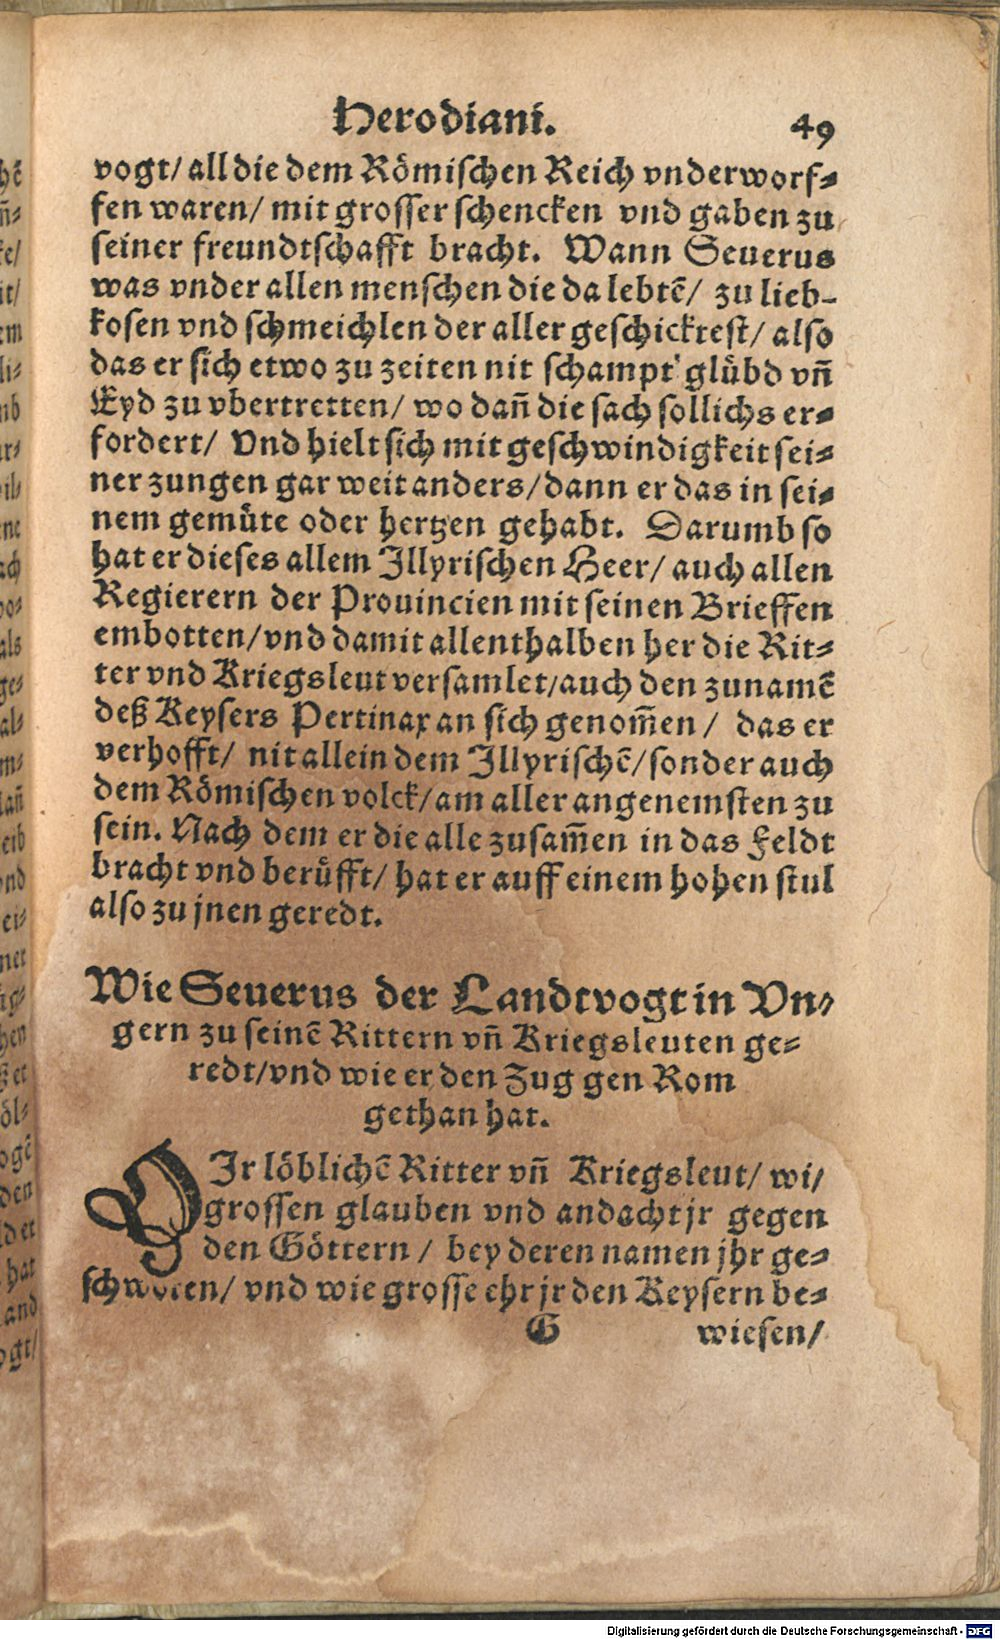 Herodiani. 49
vogt/ all die dem Römischen Reich vnderworf-
fen waren/ mit grosser schencken vnd gaben zu
seiner freundtschafft bracht. Wann Seuerus
was vnder allen menschen die da lebtē/ zu lieb-
kosen vnd schmeichlen der aller geschicktest/ also
das er sich etwo zu zeiten nit schampt glübd vñ
Eyd zu vbertretten/ wo dañ die sach sollichs er-
fordert/ Vnd hielt sich mit geschwindigkeit sei-
ner zungen gar weit anders/ dann er das in sei-
nem gemüte oder hertzen gehabt. Darumb so
hat er dieses allem Illyrischen Heer/ auch allen
Regierern der Prouincien mit seinen Brieffen
embotten/ vnd damit allenthalben her die Rit-
ter vnd Kriegsleut versamlet/ auch den zunamē
deß Keysers Pertinax an sich genom̄en / das er
verhofft/ nit allein dem Illyrischē/ sonder auch
dem Römischen volck/ am aller angenemsten zu
sein. Nach dem er die alle zusam̄en in das Feldt
bracht vnd berüfft/ hat er auff einem hohen stul
also zu jnen geredt.
Wie Seuerus der Landtvogt in Vn-
gern zu seinē Rittern vñ Kriegsleuten ge-
redt/ vnd wie er den Zug gen Rom
gethan hat.
IJr löblichē Ritter vñ Kriegsleut/ wi/
grossen glauben vnd andacht jr gegen
den Göttern / bey deren namen jhr ge-
schworen/ vnd wie grosse ehr jr den Keysern be-
G wiesen/
Digitalisierung gefördert durch die Deutsche Forschungsgemeinschaft - DFG